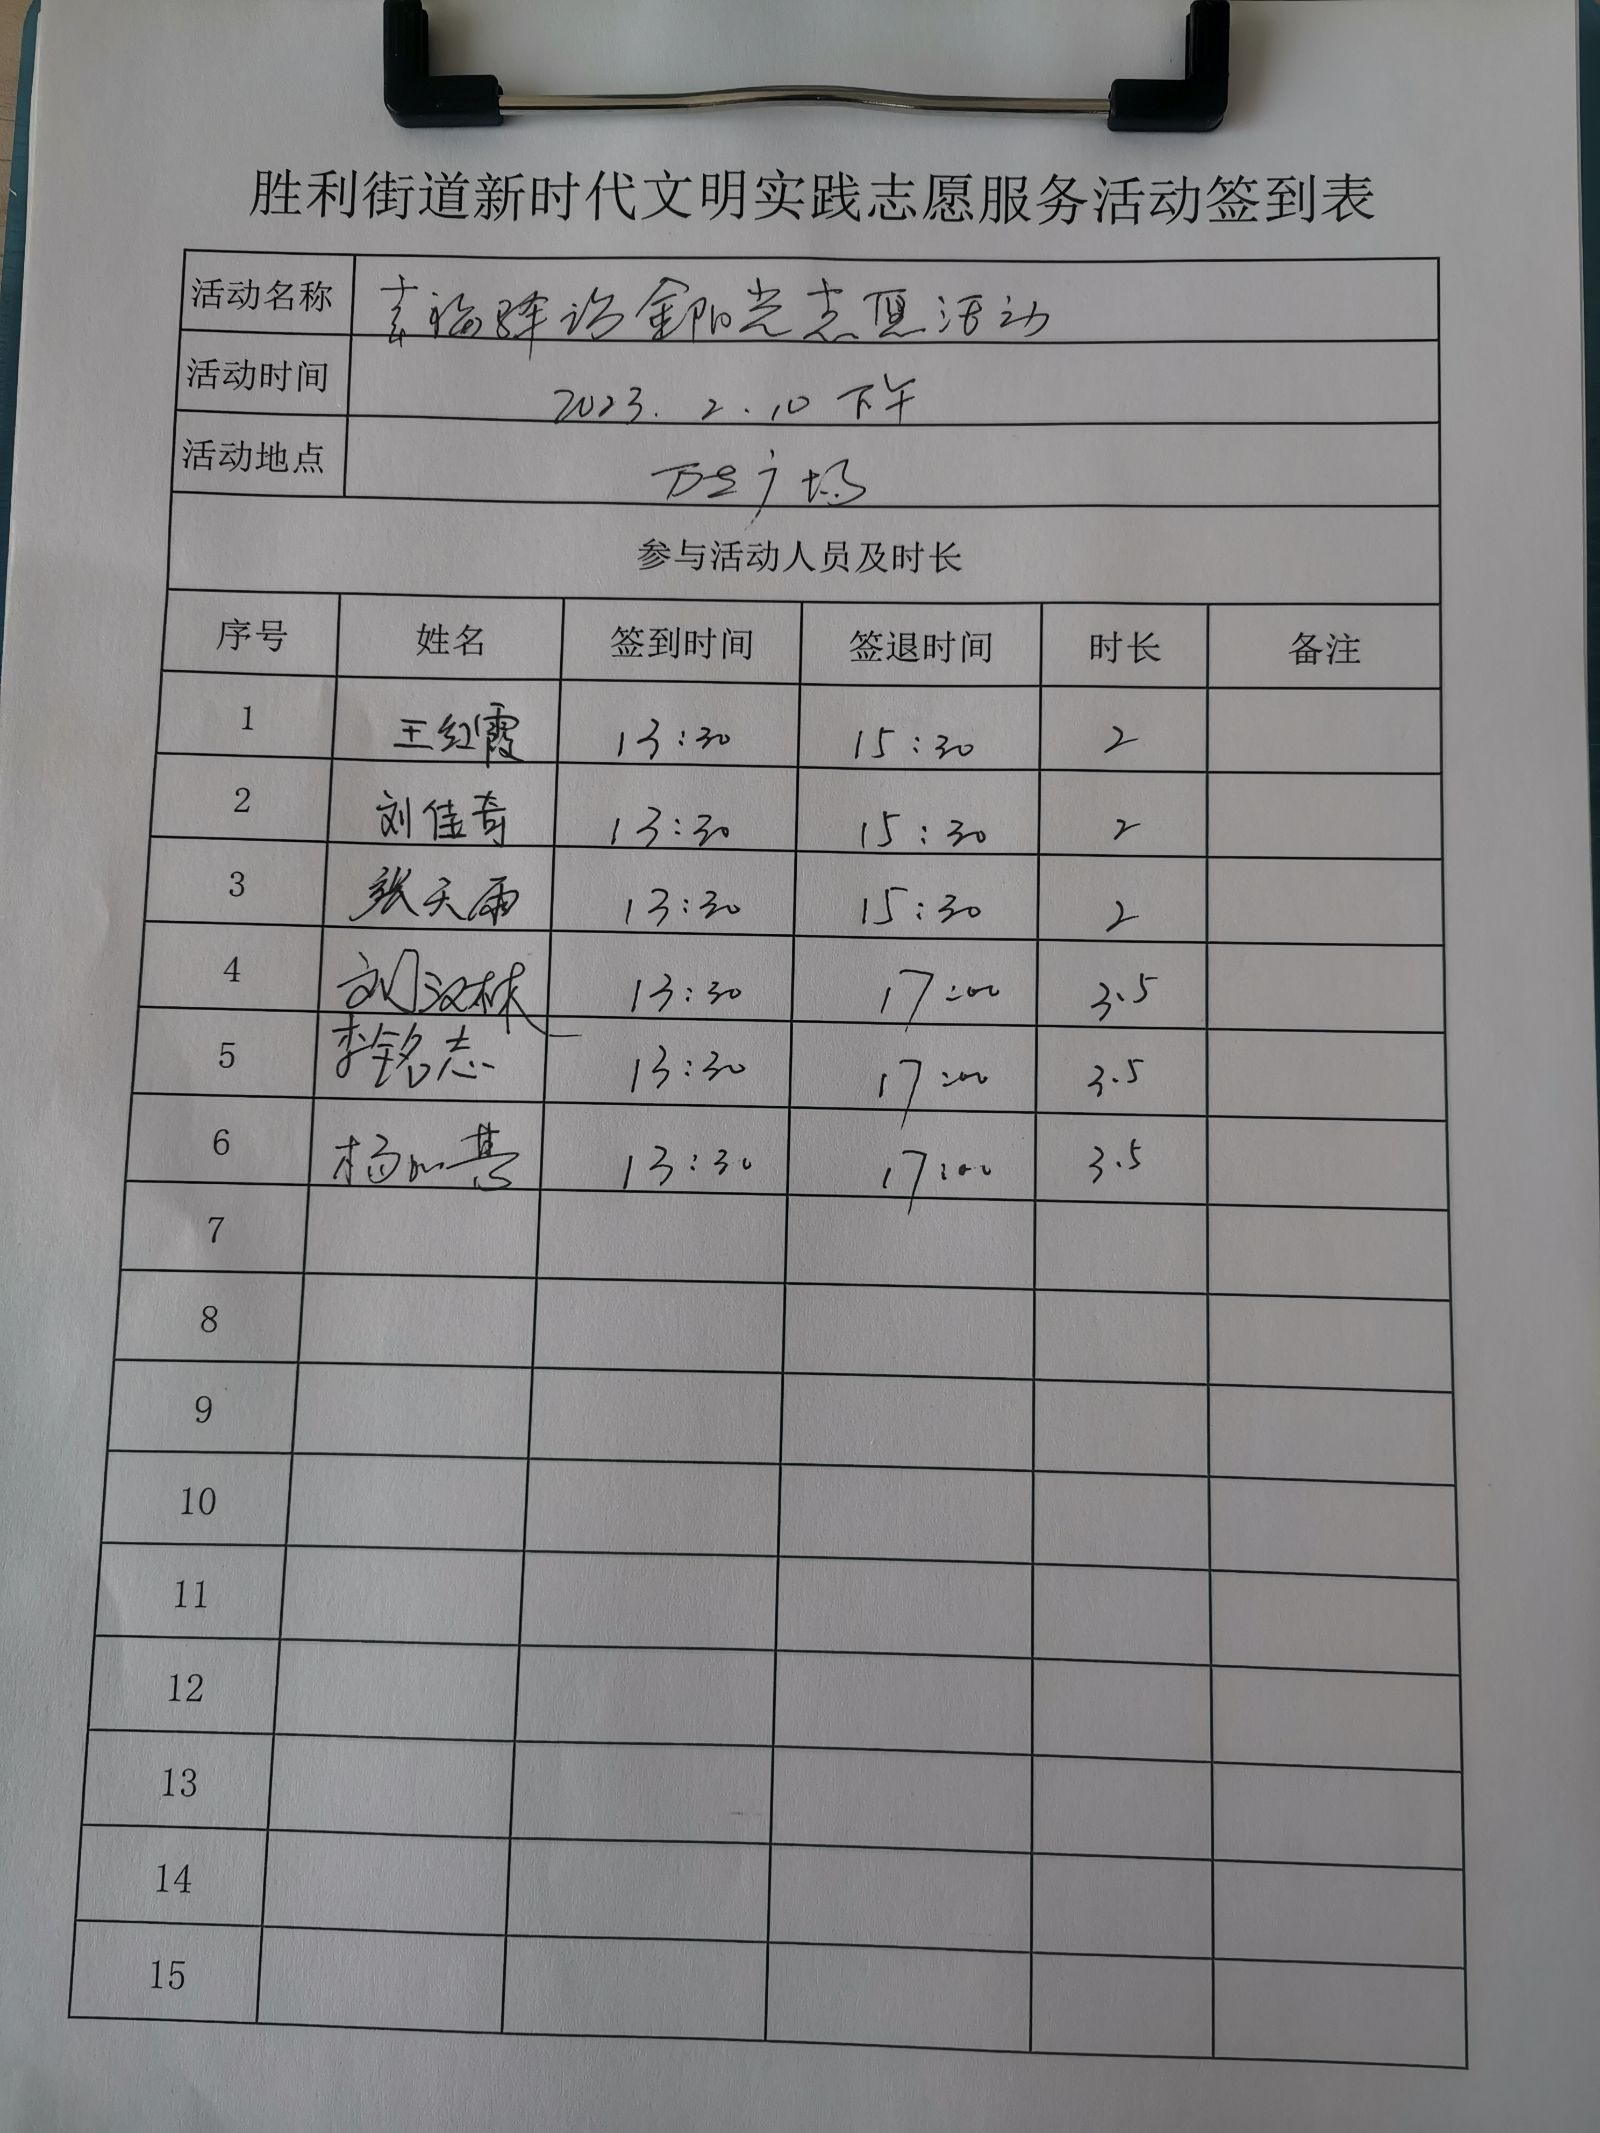 胜利街道新时代文明实践志愿服务活动签到表
活动名称 幸福驿站金阳光志愿活动
活动时间 2023.2.10下午
活动地点 万达广场
参与活动人员及时长
序号 姓名 签到时间 签退时间 时长 备注
1 王红霞 13:30 15:30 2
2 刘佳奇 13:30 15:30 2
3 张天雨 13:30 15:30 2
4 刘汉林 13:30 17:00 3.5
5 李铭志 13:30 17:00 3.5
6 13:30 17:00 3.5
7
8
9
10
11
12
13
14
15